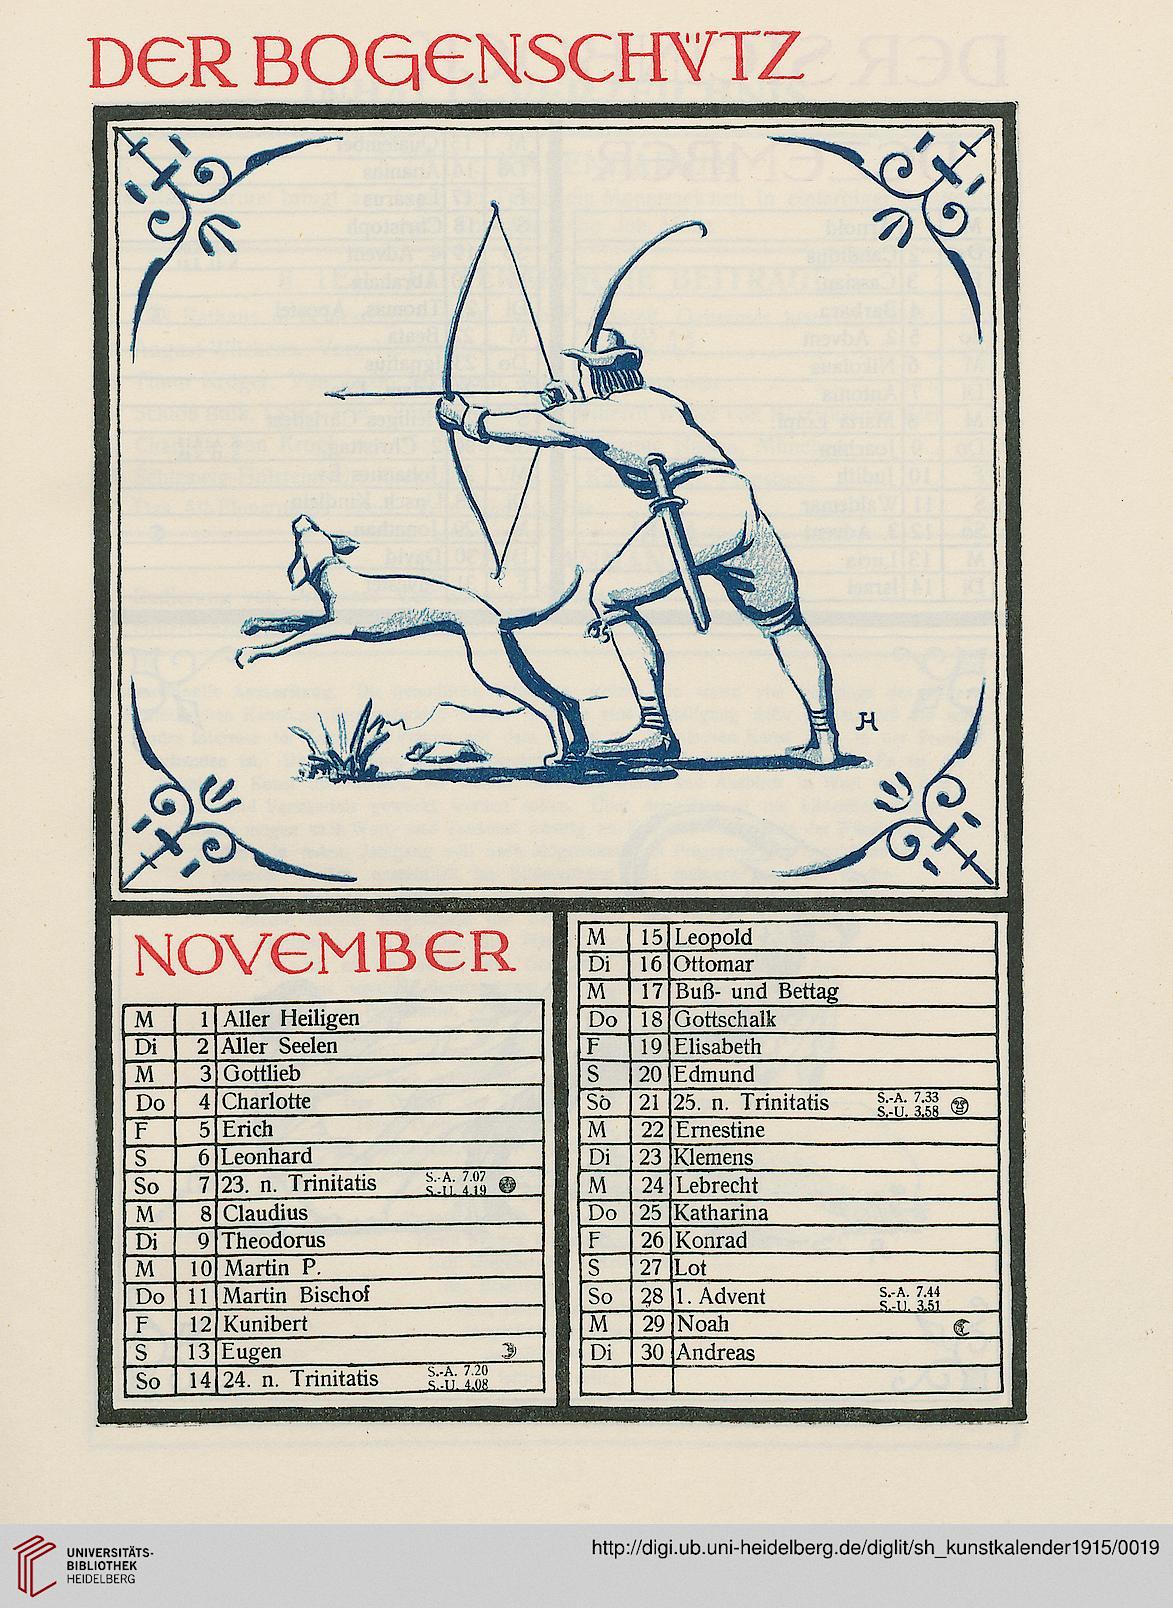 DER BOGENSCHÜTZ
JH
NOVEMBER
M 1 Aller Heiligen
Di 2 Aller Seelen
M 3 Gottlieb
Do 4 Charlotte
F 5 Erich
S 6 Leonhard
So 7 23. n. Trinitatis S.-A. 7.07 S.-U. 4.19
M 8 Claudius
Di 9 Theodorus
M 10 Martin P.
Do 11 Martin Bischof
F 12 Kunibert
S 13 Eugen
So 14 24. n. Trinitatis S.-A. 7.20 S.-U. 4.08
M 15 Leopold
Di 16 Ottomar
M 17 Buß- und Bettag
Do 18 Gottschalk
F 19 Elisabeth
S 20 Edmund
So 21 25. n. Trinitatis S.-A. 7.33 S.-U. 3.58
M 22 Ernestine
Di 23 Klemens
M 24 Lebrecht
Do 25 Katharina
F 26 Konrad
S 27 Lot
So 28 1. Advent S.-A. 7.44 S.-U. 3.51
M 29 Noah
Di 30 Andreas
UNIVERSITÄTS-
BIBLIOTHEK
HEIDELBERG
http://digi.ub.uni-heidelberg.de/diglit/sh_kunstkalender1915/0019